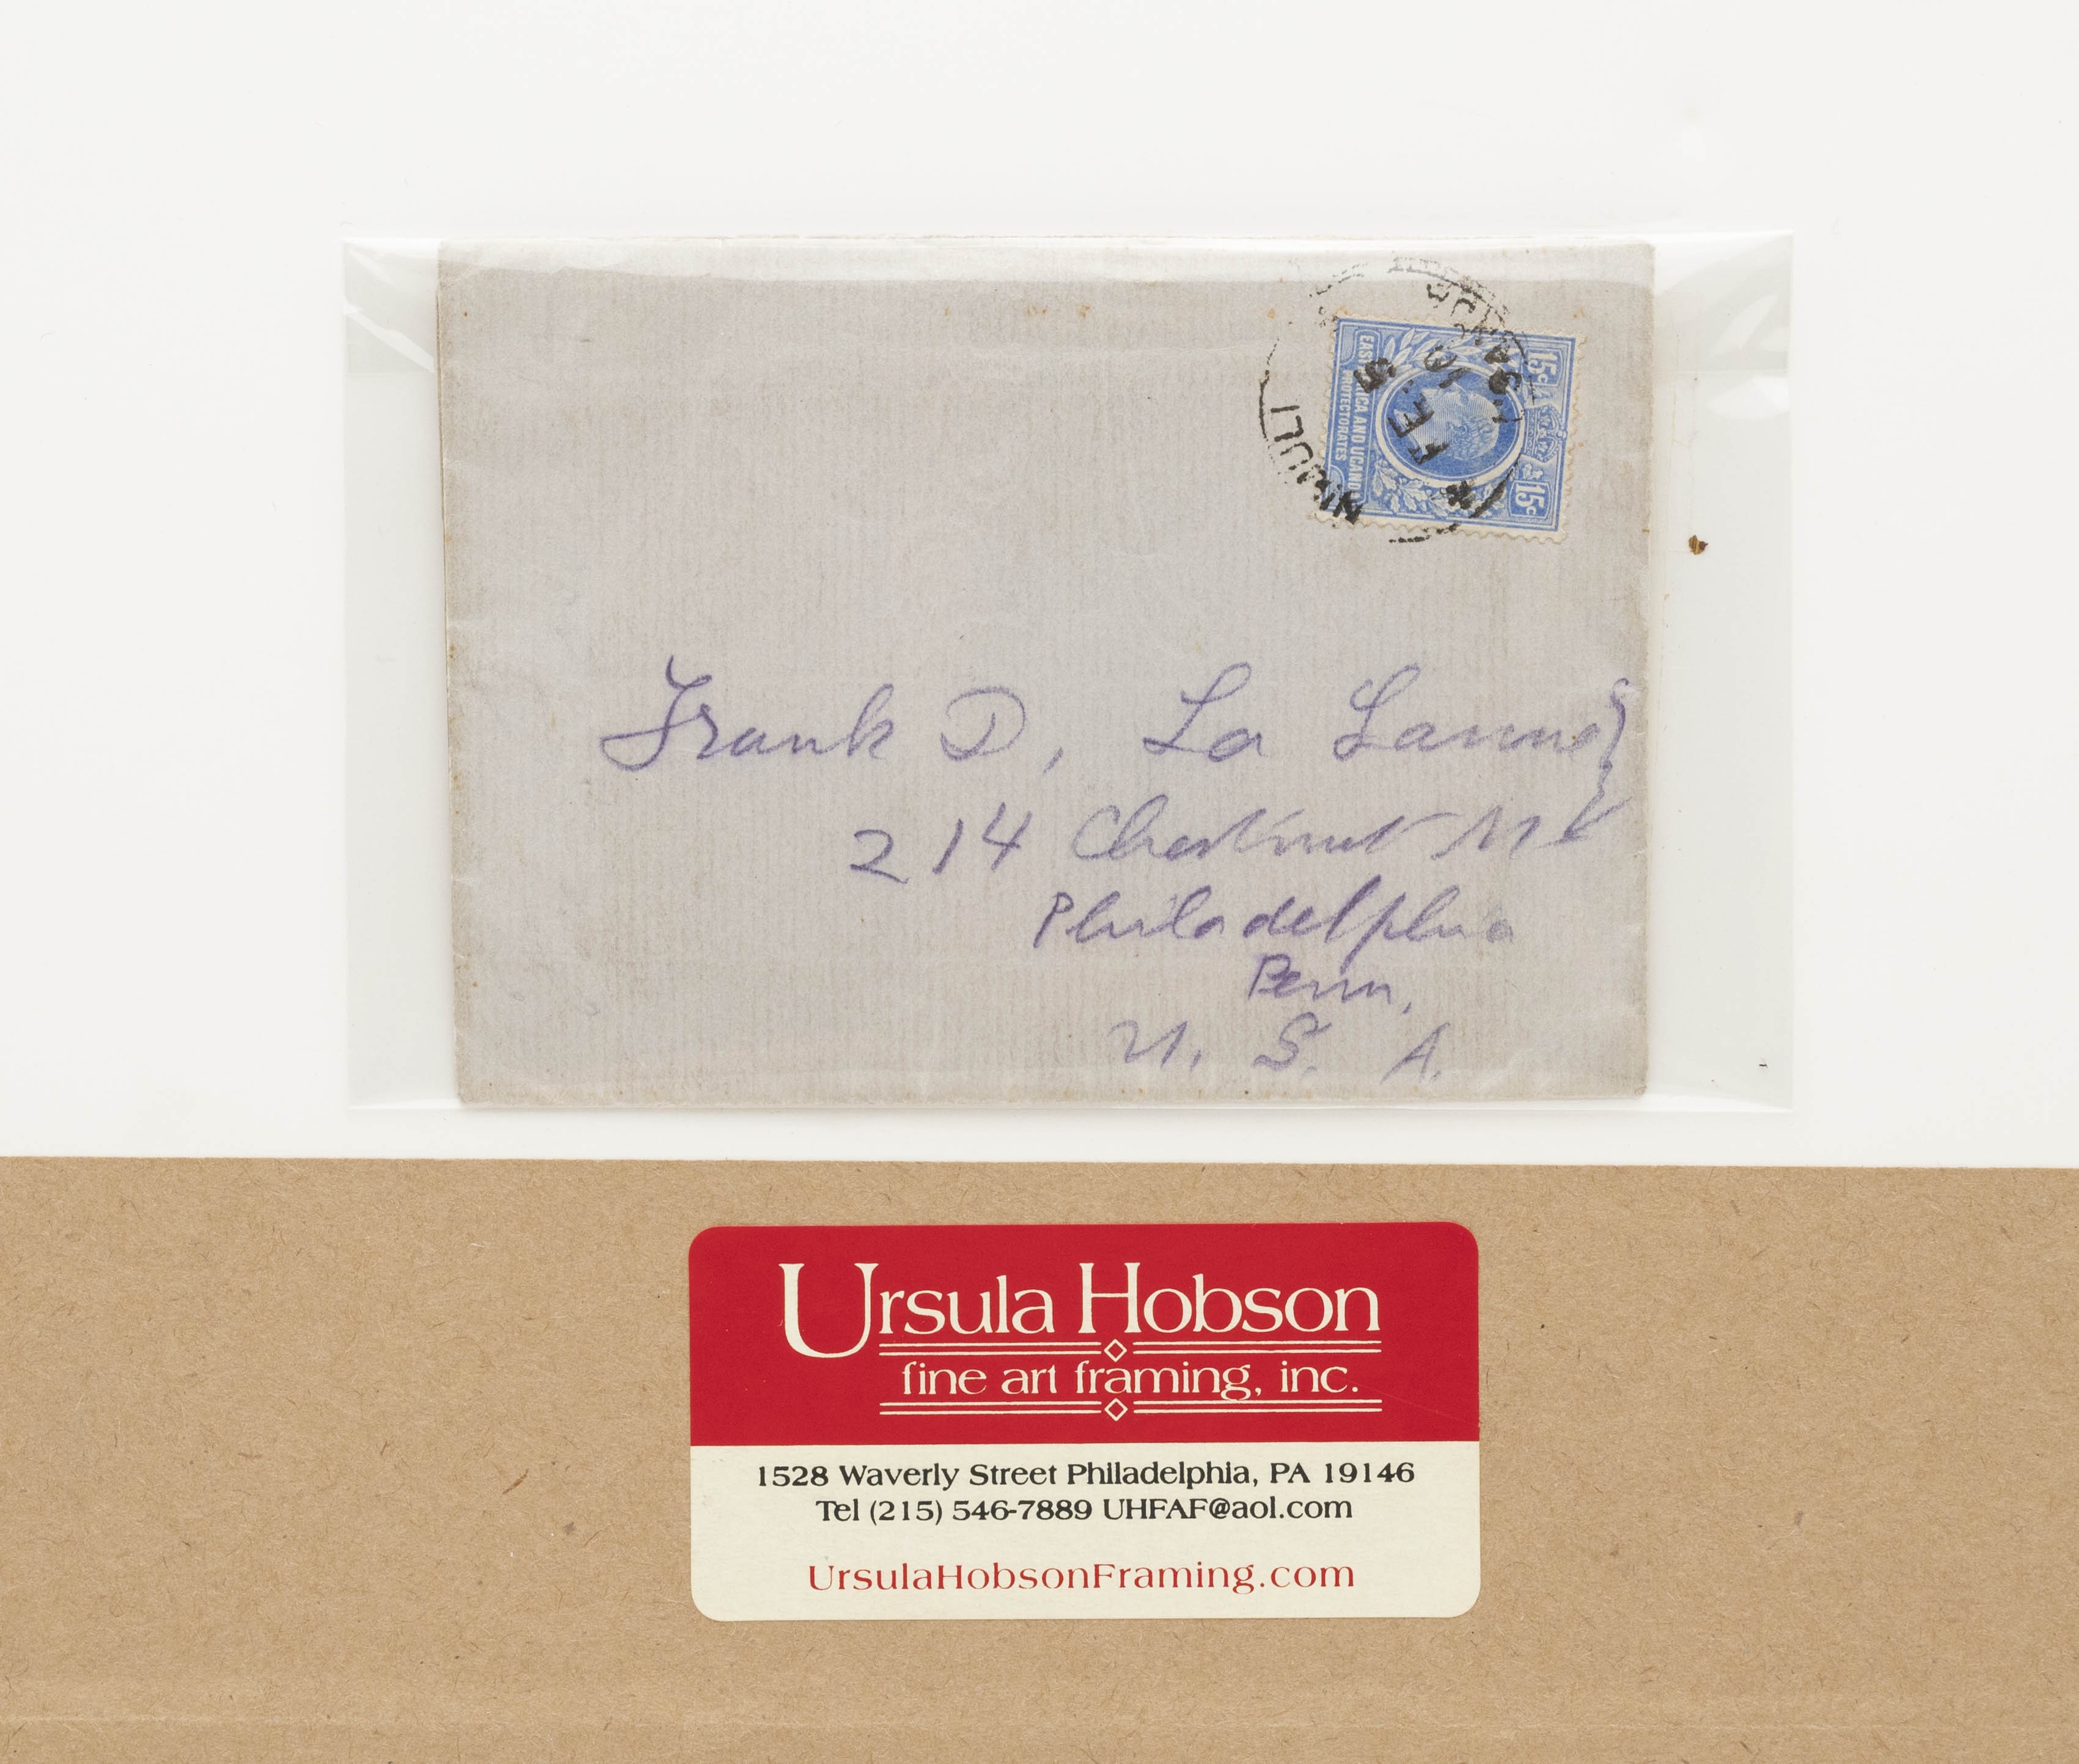 NIMULI
UGANDA
FE 5
10
15c
15c
EAST AFRICA AND UGANDA
PROTECTORATES
Frank D. La Lanne
214 Chestnut St
Philadelphia
Penn.
U. S. A.
Ursula Hobson
fine art framing, inc.
1528 Waverly Street Philadelphia, PA 19146
Tel (215) 546-7889 UHFAF@aol.com
UrsulaHobsonFraming.com